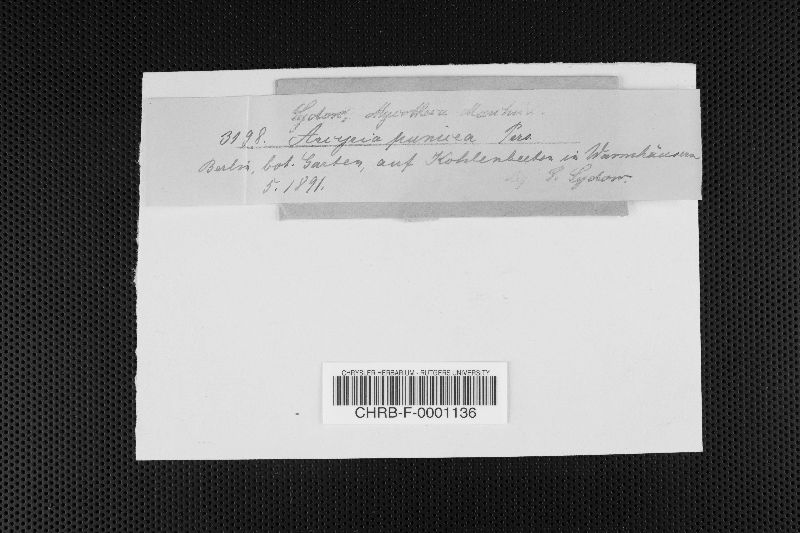 Sydow, Mycotheca Marchica.
3198. Arcyria punicea Pers.
Berlin, bot. Garten, auf Kohlenbeeten in Warmhäusern
5. 1891. P. Sydow.
CHRYSLER HERBARIUM - RUTGERS UNIVERSITY
CHRB-F-0001136